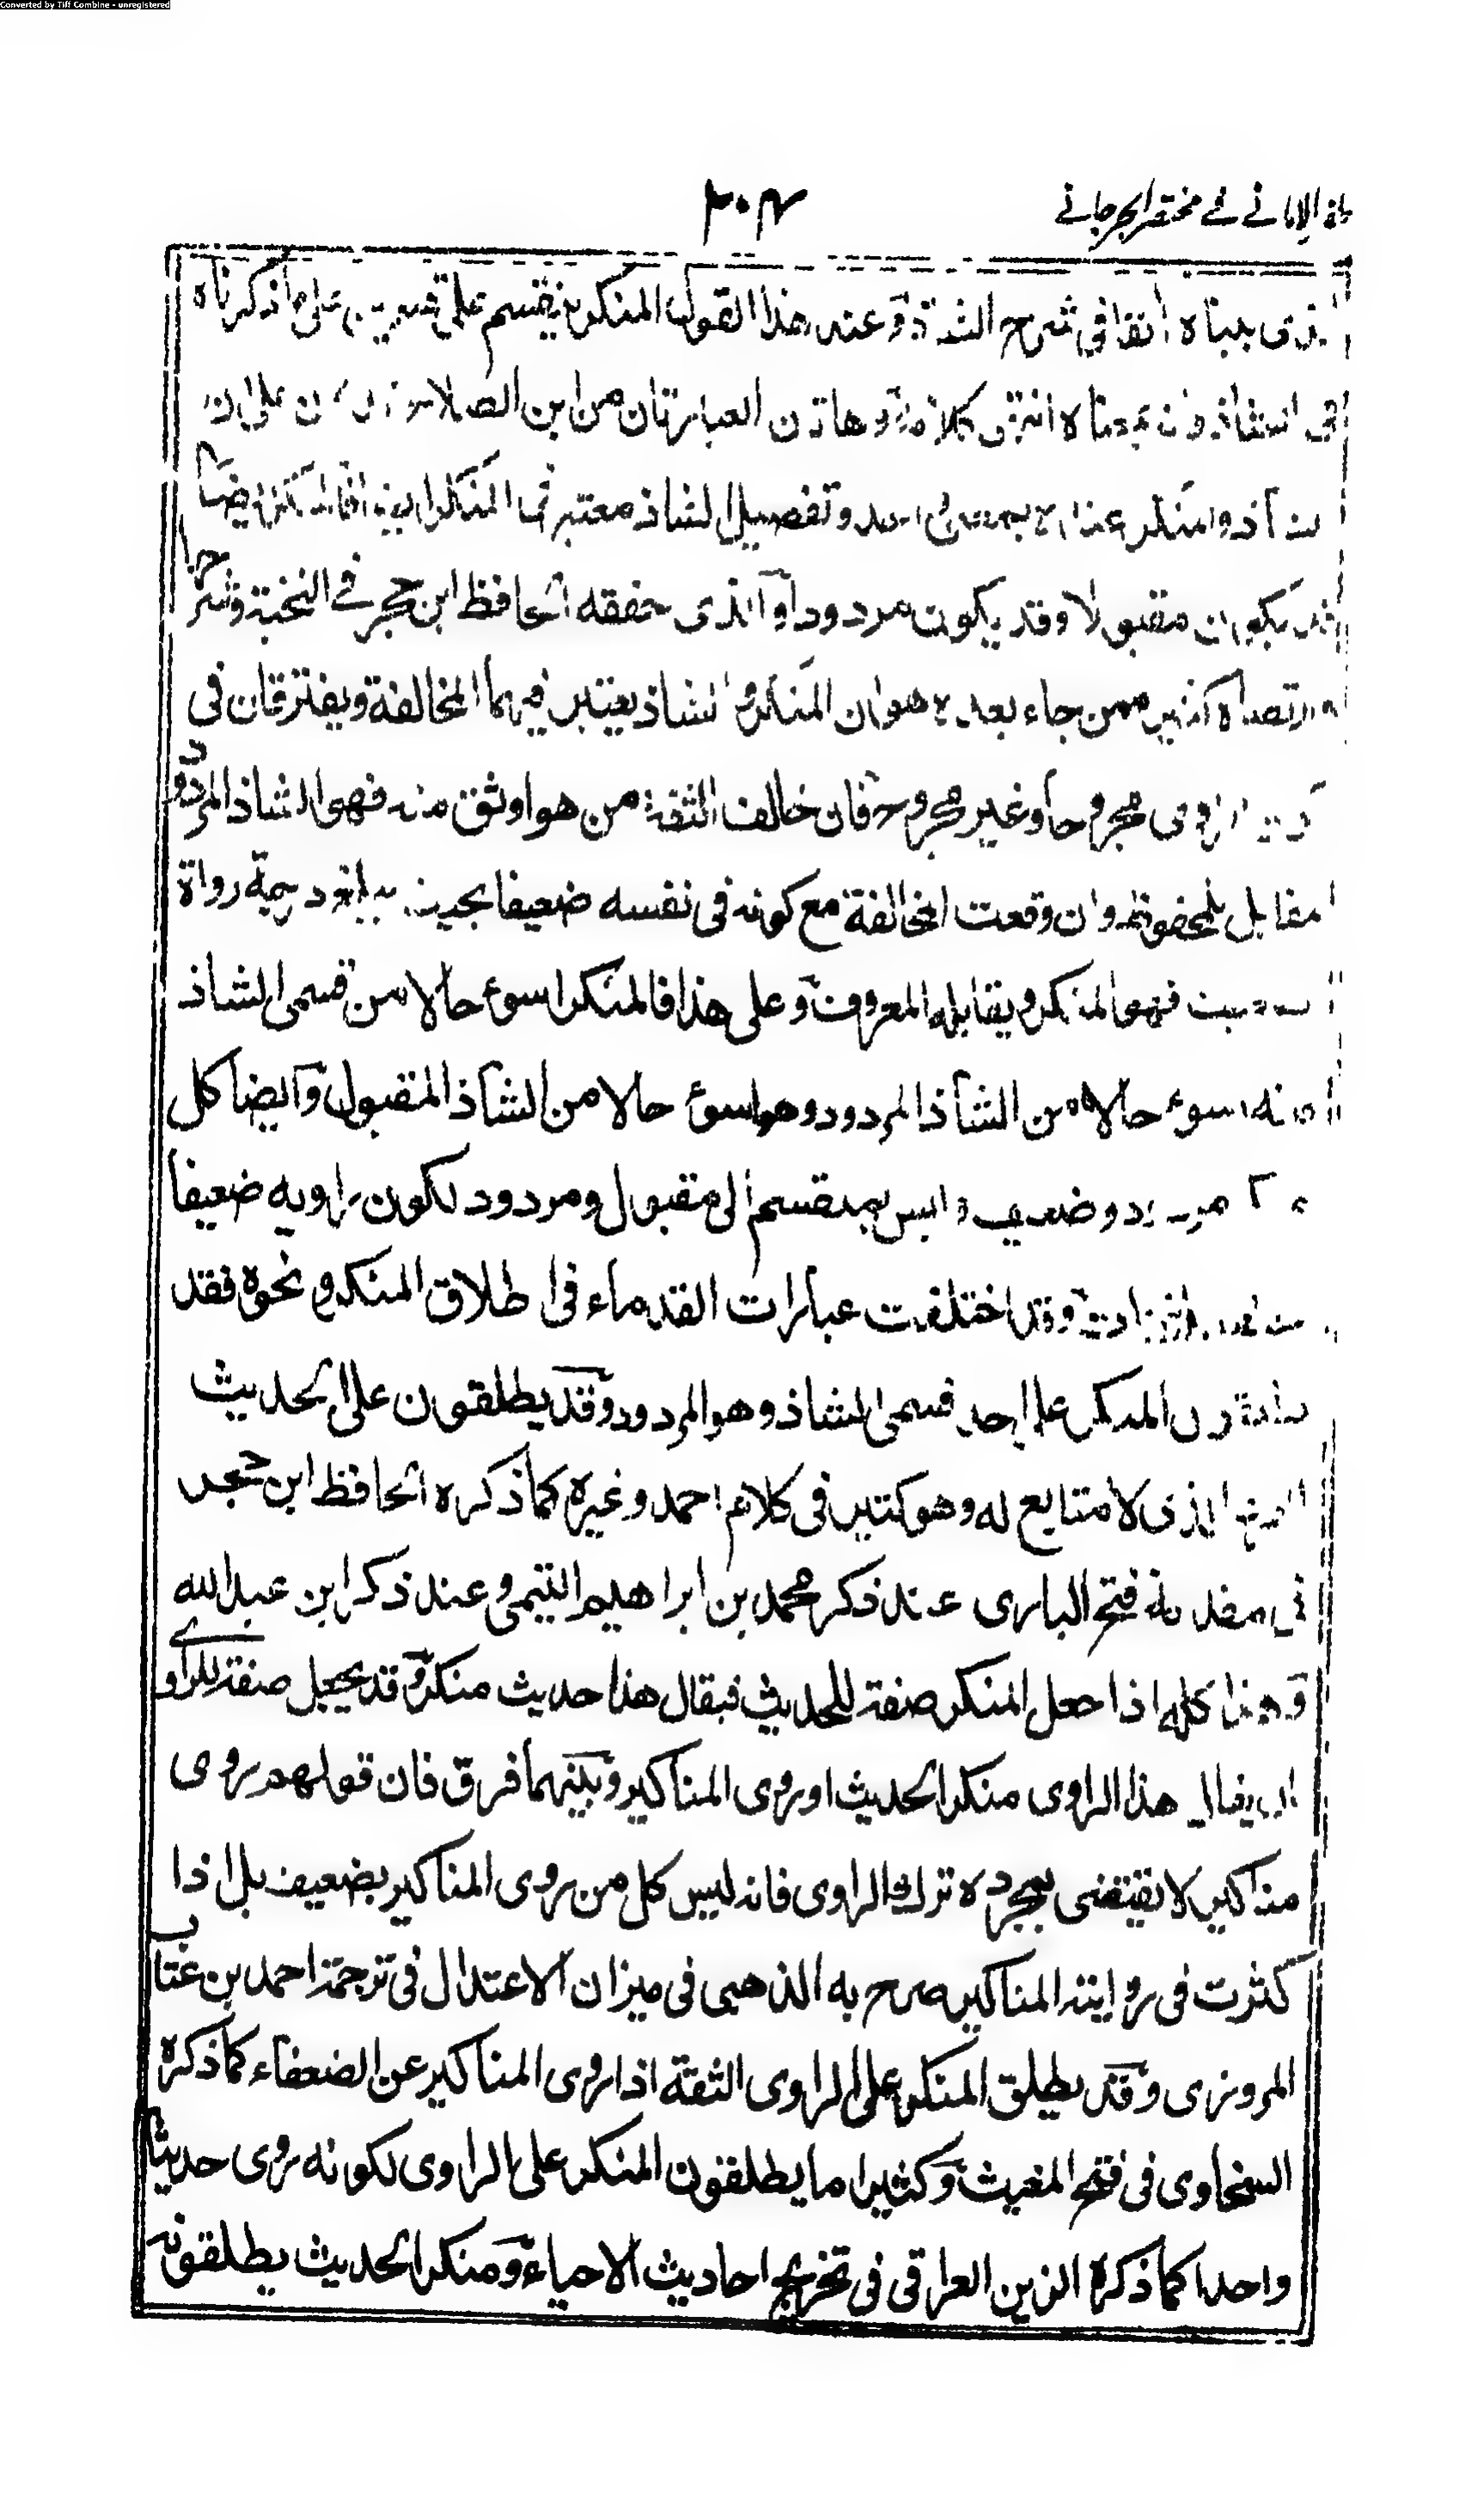 Converted by Tiff Combine - unregistered
الامانے فے مختصر الجرجانے
٢٠٤
بيناه انفا في شرح الشاذ وعند هذا القول المنكر ينقسم على قسمين على ما ذكرناه
في الشاذ فانه بمعناه انتهى كلامه وهاتان العبارتان من ابن الصلاح على ان
الشاذ والمنكر عنده بمعنى واحد وتفصيل الشاذ معتبر في المنكر ايضا
قد يكون مقبولا وقد يكون مردودا والذى حققه الحافظ ابن حجر فے النخبة وشرحها
وارتضاه كثير ممن جاء بعده هو ان المنكر والشاذ يعتبر فيهما المخالفة ويفترقان في
الراوى مجروحا وغير مجروح فان خالف الثقة من هو اوثق منه فهو الشاذ المردود
المقابل للمحفوظ وان وقعت المخالفة مع كونه فى نفسه ضعيفا بحيث رواة
فهو المنكر ويقابله المعروف وعلى هذا فالمنكر اسوء حالا من قسمى الشاذ
اسوء حالا من الشاذ المردود وهو اسوء حالا من الشاذ المقبول وايضا كل
مردود وضعيف وليس بمنقسم الى مقبول ومردود لكون راويه ضعيفا
وقد اختلفت عبارات القدماء فى اطلاق المنكر ونحوه فقد
المنكر على احد قسمى الشاذ وهو المردود وقد يطلقون على الحديث
الذى لا متابع له وهو كثير فى كلام احمد وغيره كما ذكره الحافظ ابن حجر
فى مقدمة فتح البارى عند ذكر محمد بن ابراهيم التيمى وعند ذكر ابن عبد الله
وهذا كله اذا جعل المنكر صفة للحديث فيقال هذا حديث منكر وقد يجعل صفة للراوے
يقال هذا الراوى منكر الحديث او روى المناكير وبينهما فرق فان قولهم روى
مناكير لا يقتضى بمجرده ترك الراوى فانه ليس كل من روى المناكير بضعيف بل اذا
كثرت فى روايته المناكير صرح به الذهبى فى ميزان الاعتدال فى ترجمة احمد بن عتاب
المروزى وقد يطلق المنكر على الراوى الثقة اذا روى المناكير عن الضعفاء كما ذكره
السخاوى فى فتح المغيث وكثيرا ما يطلقون المنكر على الراوى لكونه روى حديثا
واحدا كما ذكره الزين العراقى فى تخريج احاديث الاحياء ومنكر الحديث يطلقونه